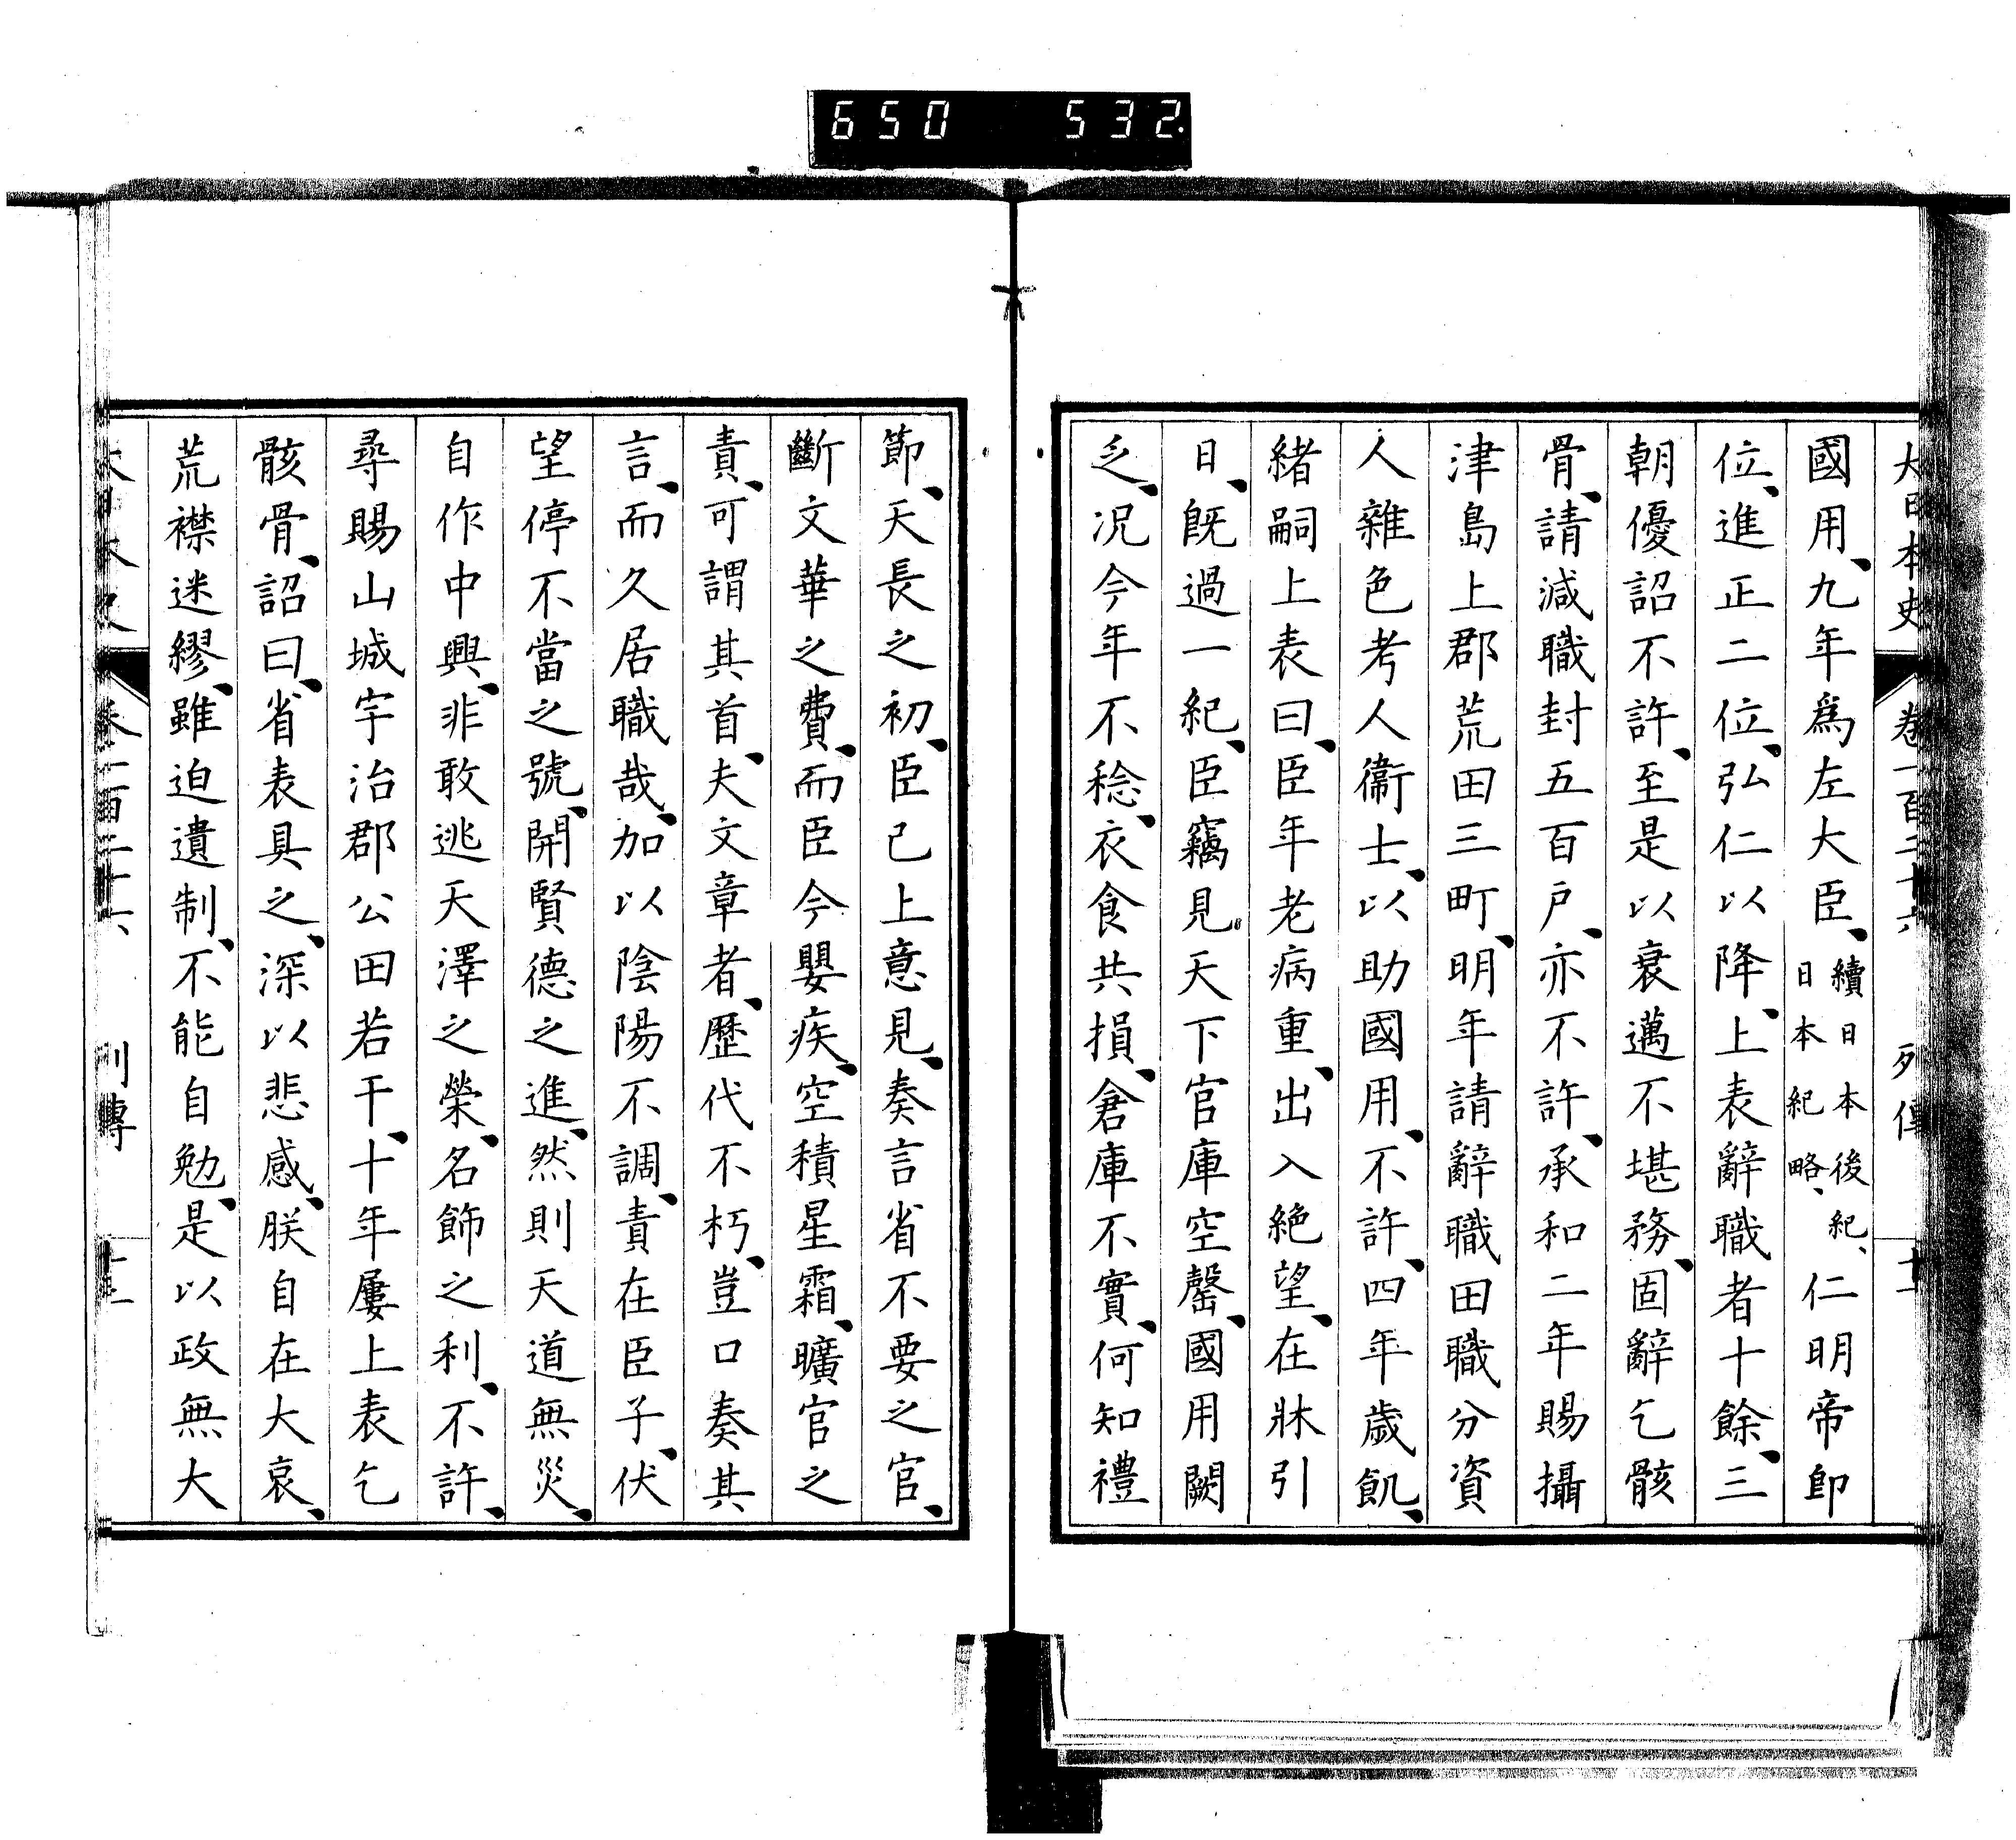 650 532.
大日本史 卷一百二十六 列傳 十一
國用、九年爲左大臣、續日本後紀、日本紀略、仁明帝卽
位、進正二位、弘仁以降、上表辭職者十餘、三
朝優詔不許、至是以衰邁不堪務、固辭乞骸
骨、請減職封五百戶、亦不許、承和二年賜攝
津島上郡荒田三町、明年請辭職田職分資
人雜色考人衞士、以助國用、不許、四年歲飢、
緒嗣上表曰、臣年老病重、出入絶望、在牀引
日、旣過一紀、臣竊見天下官庫空罄、國用闕
乏、況今年不稔、衣食共損、倉庫不實、何知禮
節、天長之初、臣已上意見、奏言省不要之官、
斷文華之費、而臣今嬰疾、空積星霜、曠官之
責、可謂其首、夫文章者、歷代不朽、豈口奏其
言、而久居職哉、加以陰陽不調、責在臣子、伏
望停不當之號、開賢德之進、然則天道無災、
自作中興、非敢逃天澤之榮、名飾之利、不許、
尋賜山城宇治郡公田若干、十年屢上表乞
骸骨、詔曰、省表具之、深以悲感、朕自在大哀、
荒襟迷繆、雖迫遺制、不能自勉、是以政無大
大日本史 卷一百二十六 列傳 十二